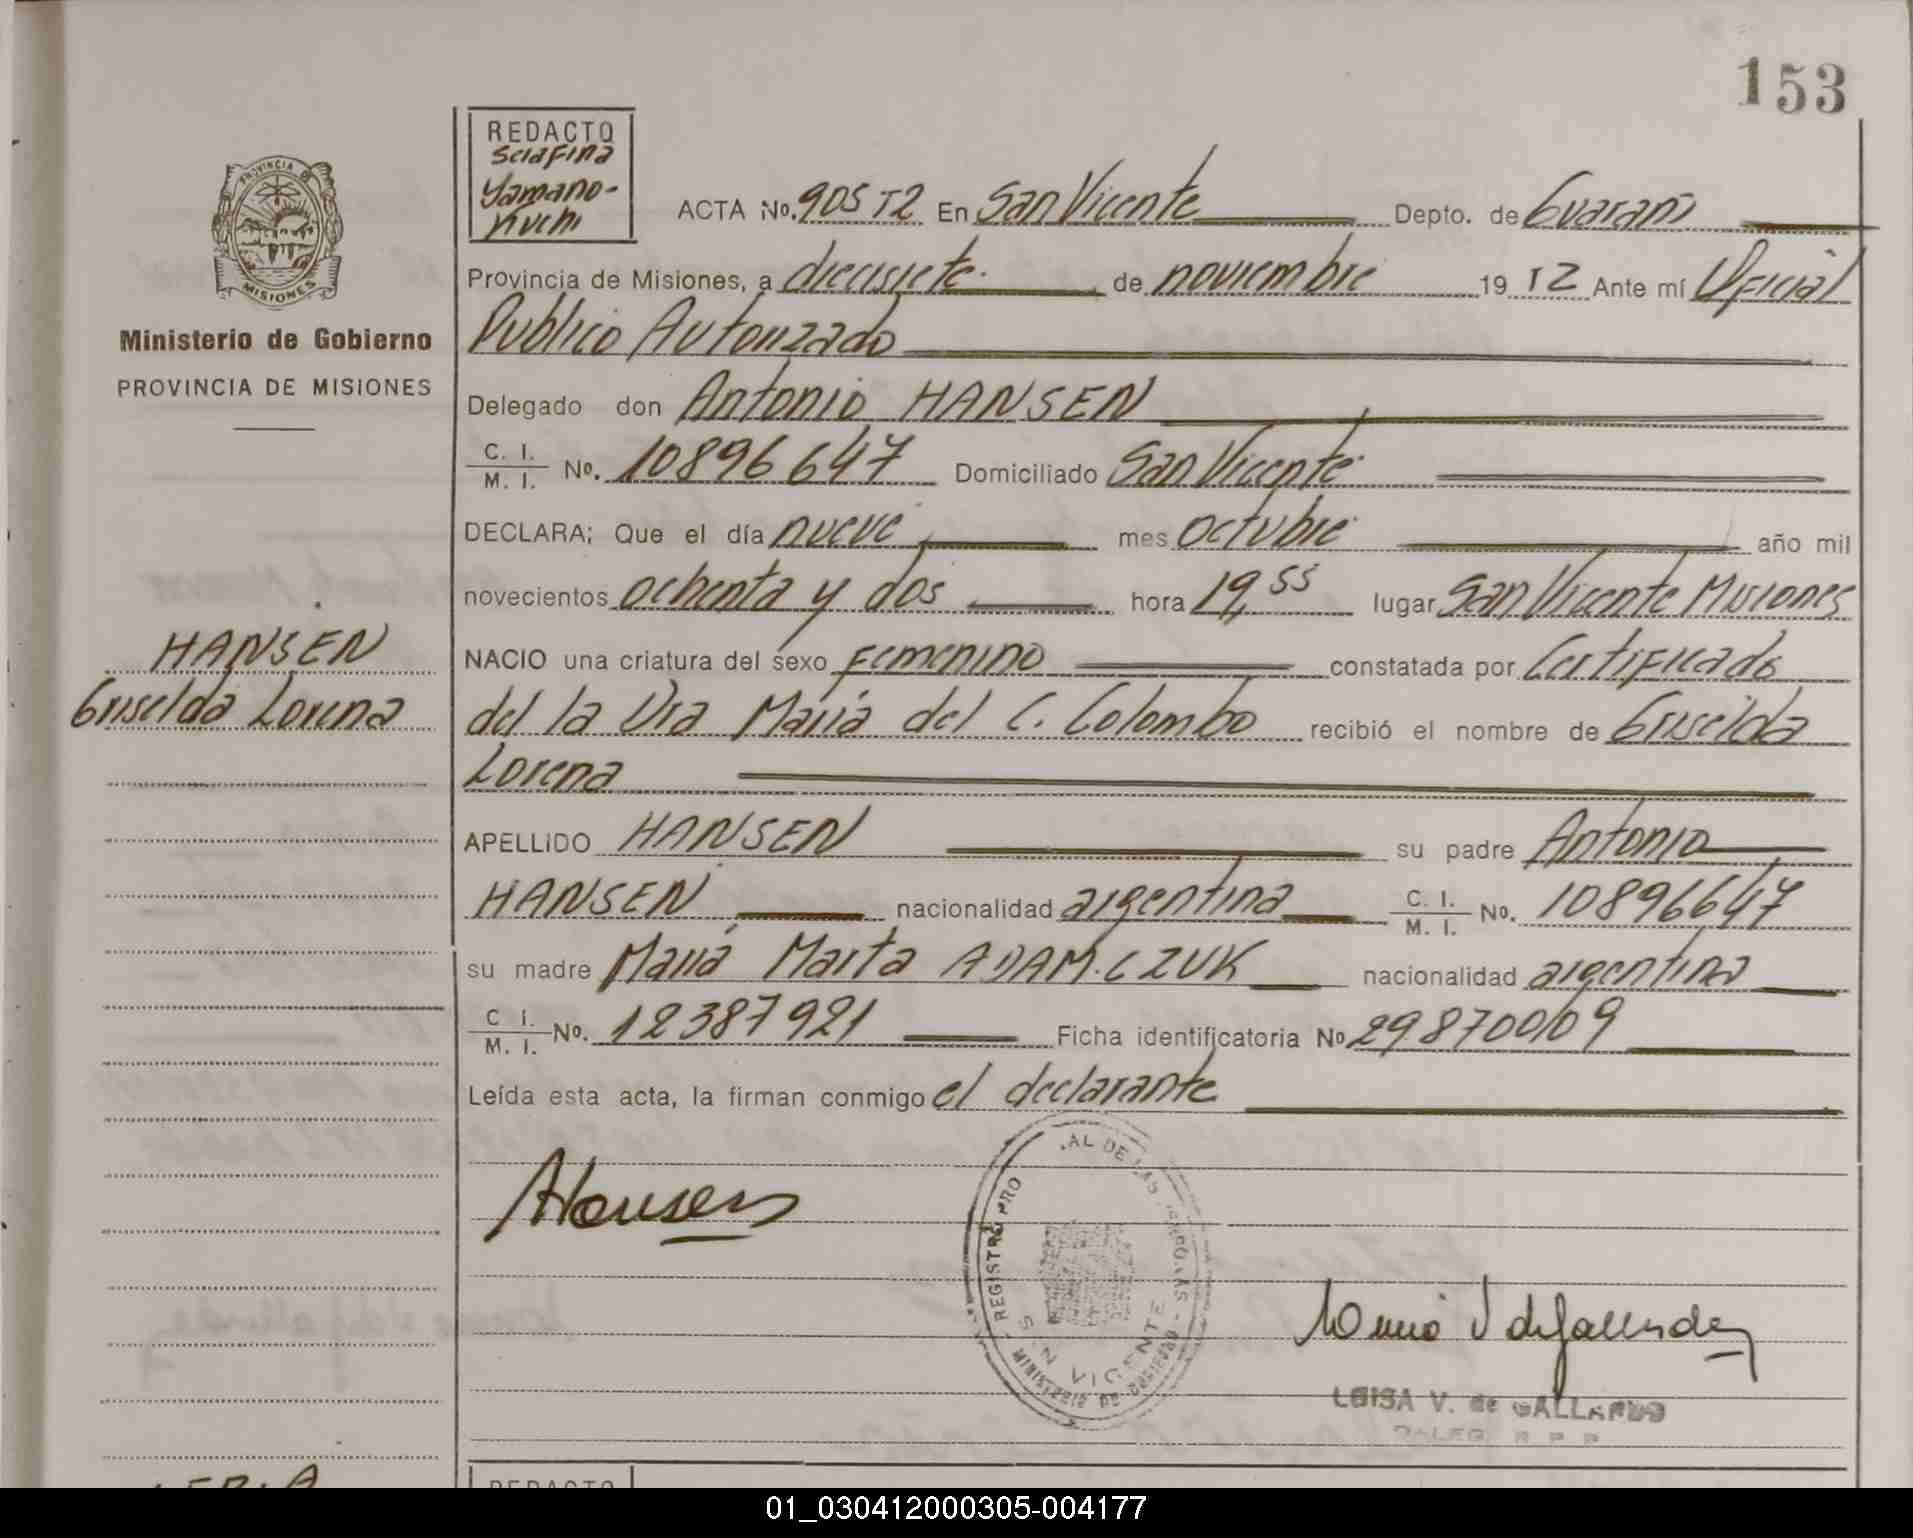 153
REDACTO
Serafina
Yamano-
nuchi
PROVINCIA DE
MISIONES
Ministerio de Gobierno
PROVINCIA DE MISIONES
ACTA No. 905 T2 En San Vicente Depto. de Guarani
Provincia de Misiones, a diecisiete de noviembre 19 82 Ante mí Oficial
Publico Autorizado
Delegado don Antonio HANSEN
C. I.
M. I. No. 10896647 Domiciliado San Vicente
DECLARA; Que el día nueve mes octubre año mil
novecientos ochenta y dos hora 19,55 lugar San Vicente Misiones
NACIO una criatura del sexo femenino constatada por Certificado
del la Dra Maria del C. Colombo recibió el nombre de Griselda
Lorena
HANSEN
Griselda Lorena
APELLIDO HANSEN su padre Antonio
HANSEN nacionalidad argentina C. I.
M. I. No. 10896647
su madre Maria Marta ADAM.CZUK nacionalidad argentina
C I.
M. I. No. 12387921 Ficha identificatoria No 298700/09
Leída esta acta, la firman conmigo el declarante
AHansen
REGISTRO PRO AL DE LAS PERSONAS
SAN VICENTE
LUISA V. de GALLARDO
REDACTO
01_030412000305-004177